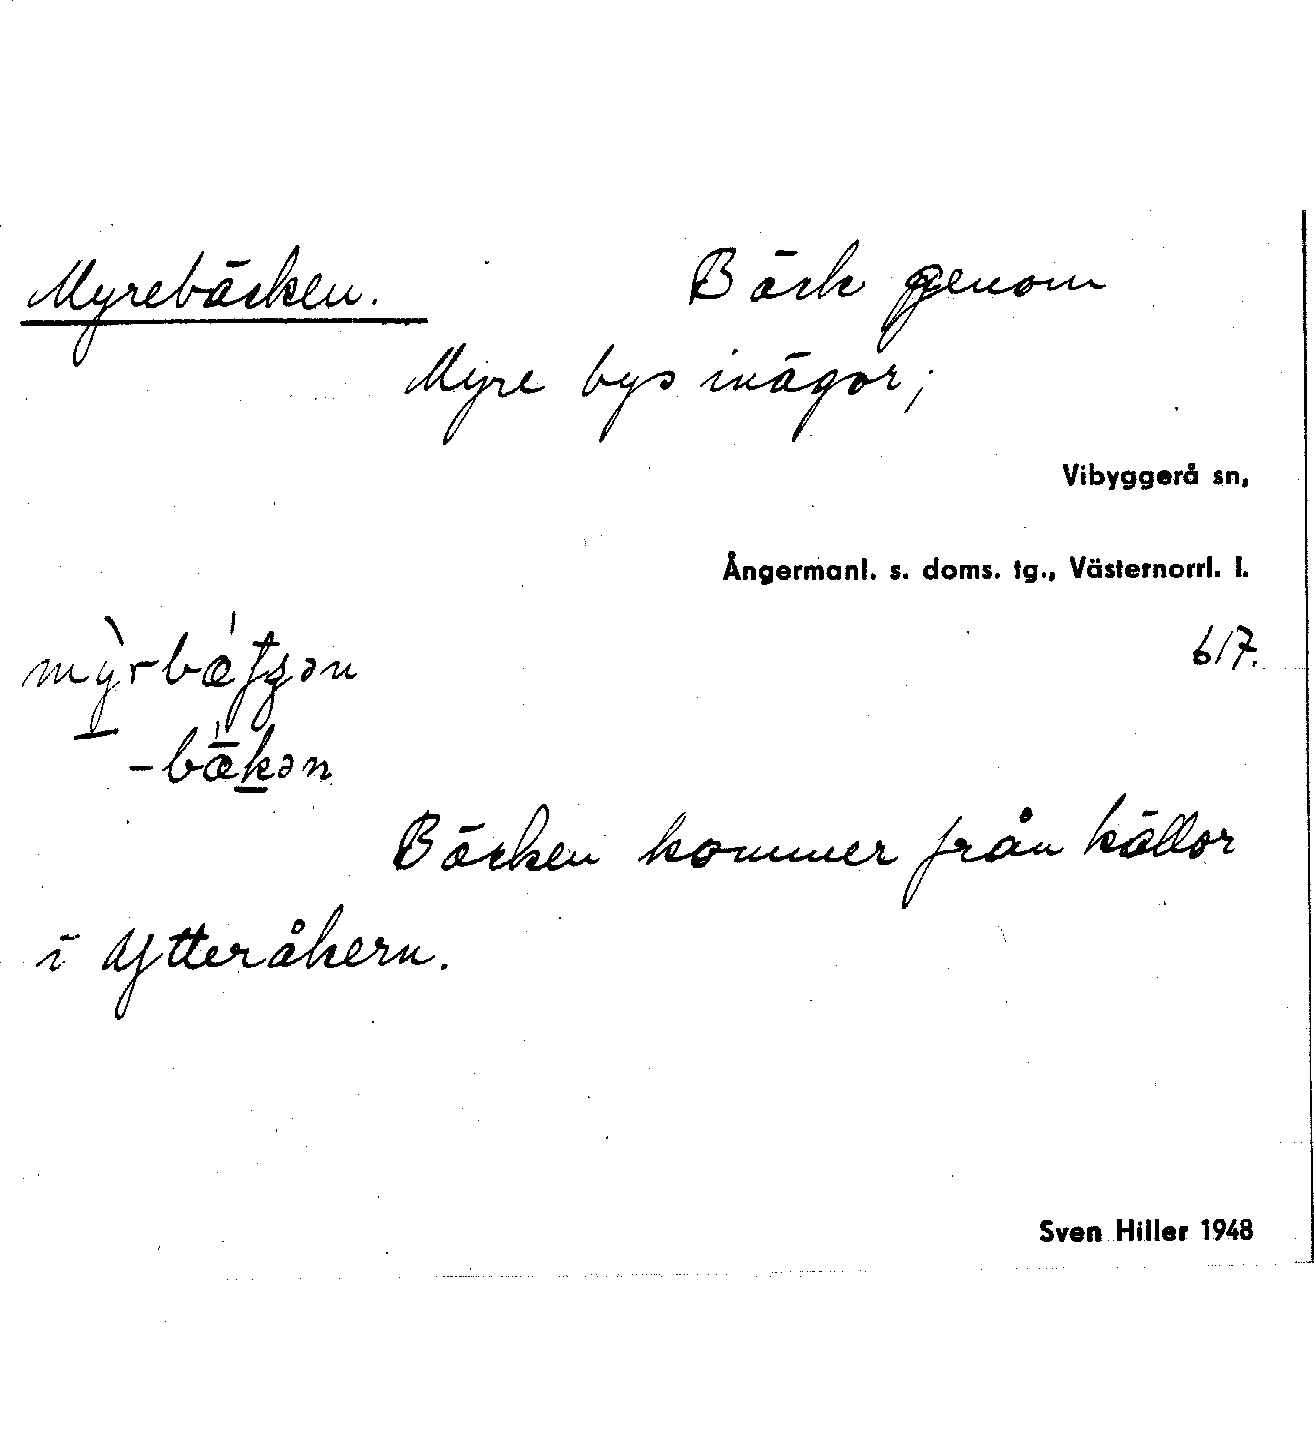 Myrebäcken. Bäck genom
Myre bys inägor;
Vibyggerå sn,
Ångermanl. s. doms. tg., Västernorrl. l.
617.
-bǣkən
Bäcken kommer från källor
i Ytteråkern.
Sven Hiller 1948